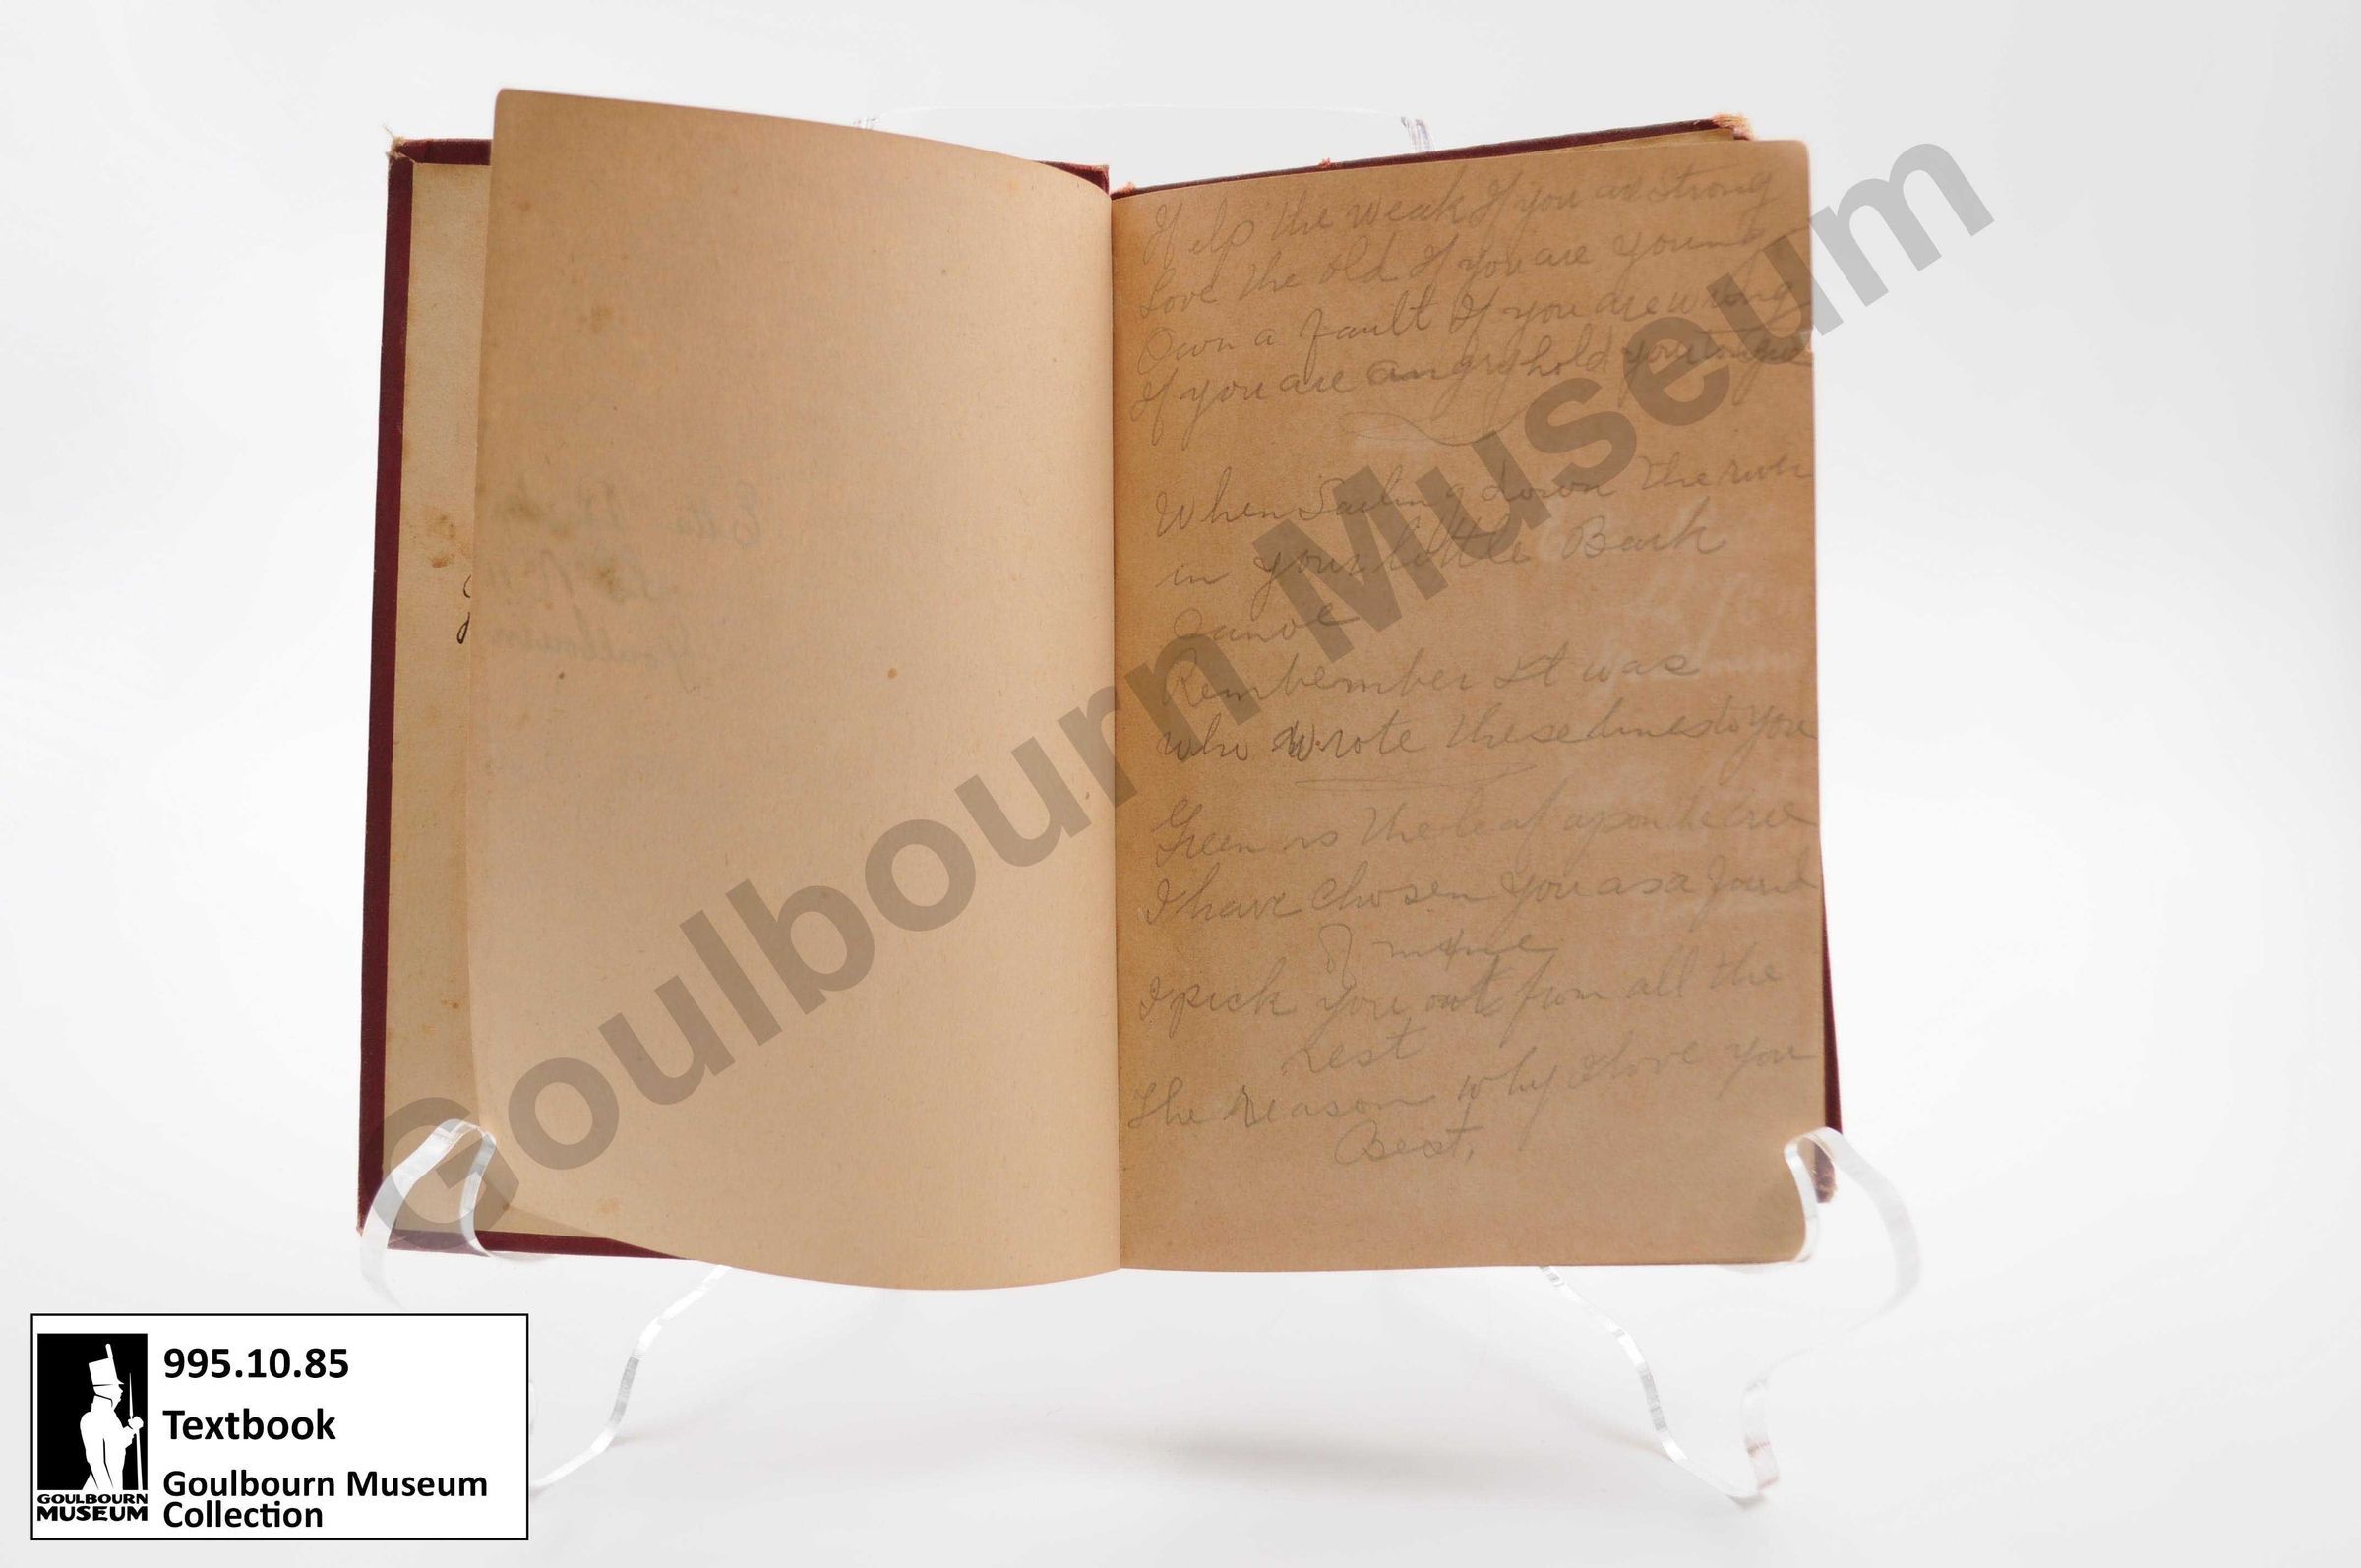 Help the weak If you are Strong
Love the old If you are young
Own a fault If you are wrong
If you are angry hold your tongue
When Sailing down the river
in your little Bark
Canoe
Rembember It was
who wrote these lines to you
Green is the leaf upon
I have chosen you as a
of mine
I pick you out from all the
rest
The reason why I love you
Best.
Goulbourn Museum
995.10.85
Textbook
Goulbourn Museum
Collection
GOULBOURN
MUSEUM